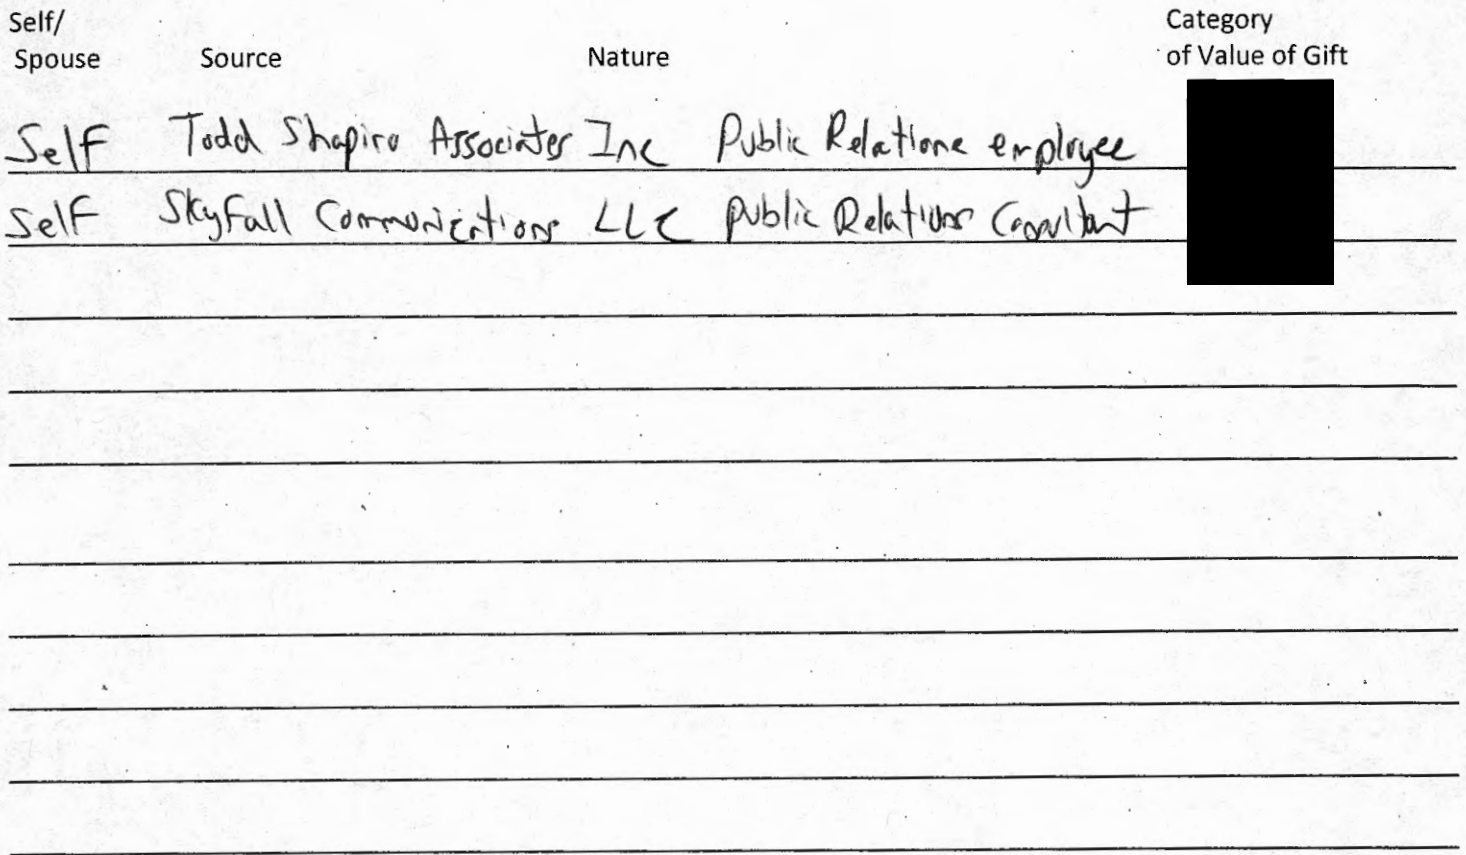 Self/
Spouse Source Nature Category of Value of Gift
Self Todd Shapiro Associates Inc Public Relations employee
Self Skyfall Communications LLC public Relations Consultant